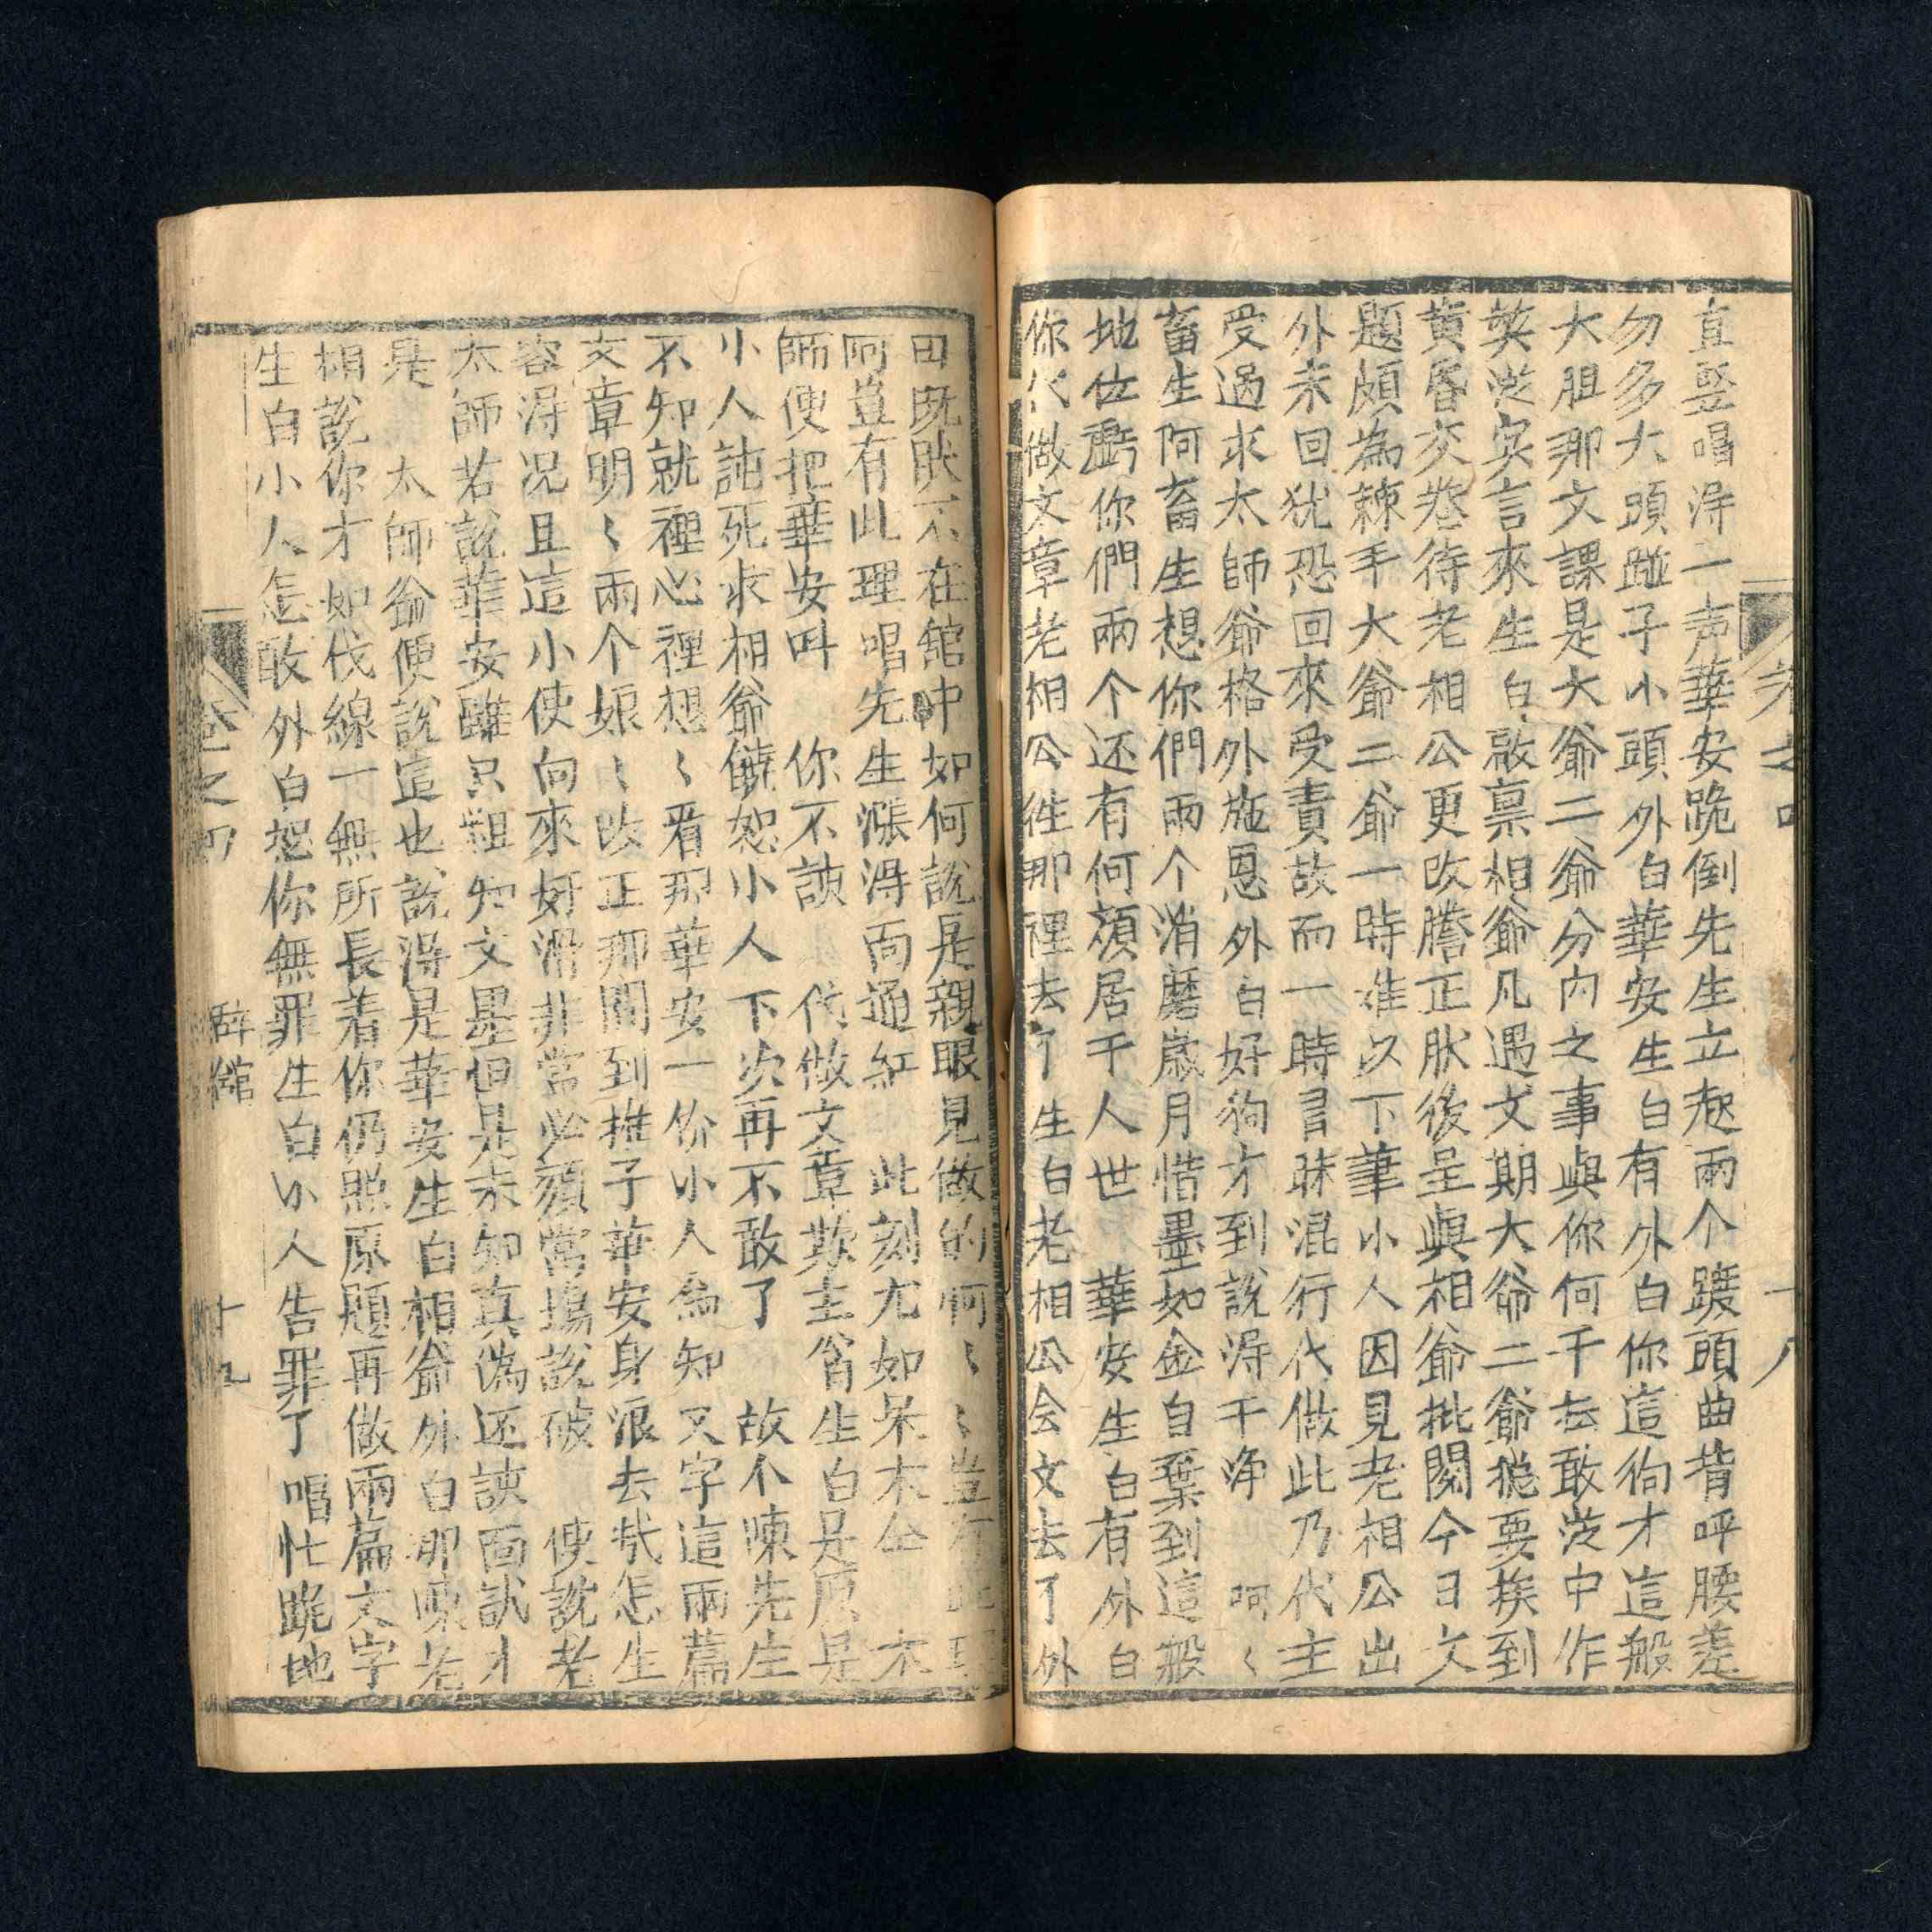 卷之四
十八
直竖唱淂一声華安跪倒先生立起兩个踆頭曲背呼腰差
勿多大頭踫子小頭外白華安生白有外白你這狗才這般
大胆那文課是大爺二爺分内之事與你何干敢從中作
獘從实言來生白啟禀相爺凡遇文期大爺二爺挨到
黄昏交卷待老相公更改謄正脉後呈與相爺批閱今日文
題頗為棘手大爺二爺一時难以下筆小人因見老相公出
外未回犹恐回來受責故而一時昧混行代做此乃代主
受過求太師爺格外施恩外白好狗才到說淂干净 呵〻
畜生阿畜生想你們兩个消磨歲月惜墨如金自棄到這般
地位虧你們兩个还有何顔居于人世 華安生白有外白
你代做文章老相公徃那裡去了生白老相公会文去了外
田既肰不在舘中如何說是親眼見做的呵〻〻豈有此理
阿豈有此理唱先生漲淂面通紅 此刻尤如呆木仝 木
師便把華安呌 你不該 代做文章欺主翁生白是原是
小人該死求相爺饒恕小人下次再不敢了 故个陳先生
不知就裡心裡想〻看那華安一价小人翁知 文字這兩篇
文章明〻兩个娘〻改正那関到推子華安身浪去哉怎生
容淂况且這小使向來好滑非常必須當塲說破 便說老
太師若說華安雖只粗知文墨但是未知真偽还該面試才
是 太師爺便說這也說淂是華安生白相爺外白那陳老
相說你才如伐線一無所長着你仍照原題再做兩篇文字
生白小人怎敢外白恕你無罪生白小人告罪了 唱忙跪地
卷之四
辭舘
十九